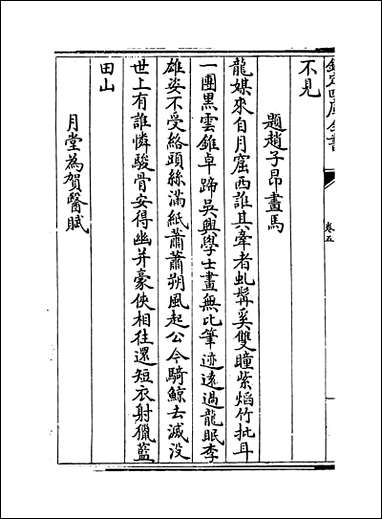 欽定四庫全書
卷五
不見
題趙子昂畫馬
龍媒來自月窟西誰其牽者虬髯奚雙瞳紫熖竹批耳
一團黒雲錐卓蹄吳興學士畫無比筆迹遠過龍眠李
雄姿不受絡頭絲滿紙蕭蕭朔風起公今騎鯨去滅没
世上有誰憐駿骨安得幽并豪俠相往還短衣射獵藍
田山
月堂為賀醫賦